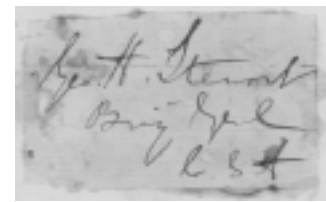 Geo. H. Steuart
Brig Genl
C S A